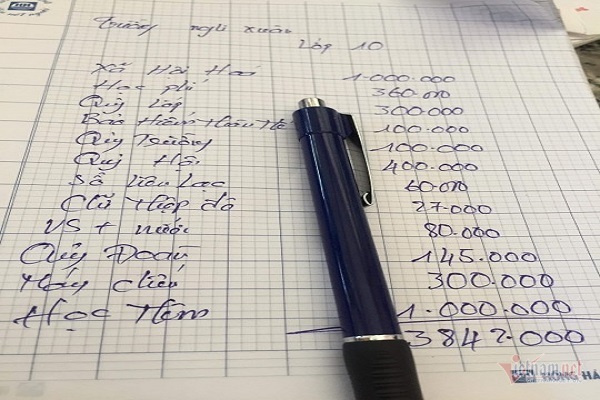 Trường nghi xuân
Lớp 10
Xã Hội Hoá 1.000.000
Học phí 360.000
Quỹ Lớp 300.000
Bảo Hiểm Thân Thể 100.000
Qũy Trường 100.000
Quỹ Hội 400.000
Sổ Liên Lạc 60.000
Chữ Thập đỏ 27.000
VS + nước 80.000
Qũy Đoàn 145.000
Máy chiếu 300.000
Học Thêm 1.000.000
3842.000
vietnamnet
HỒNG HÀ